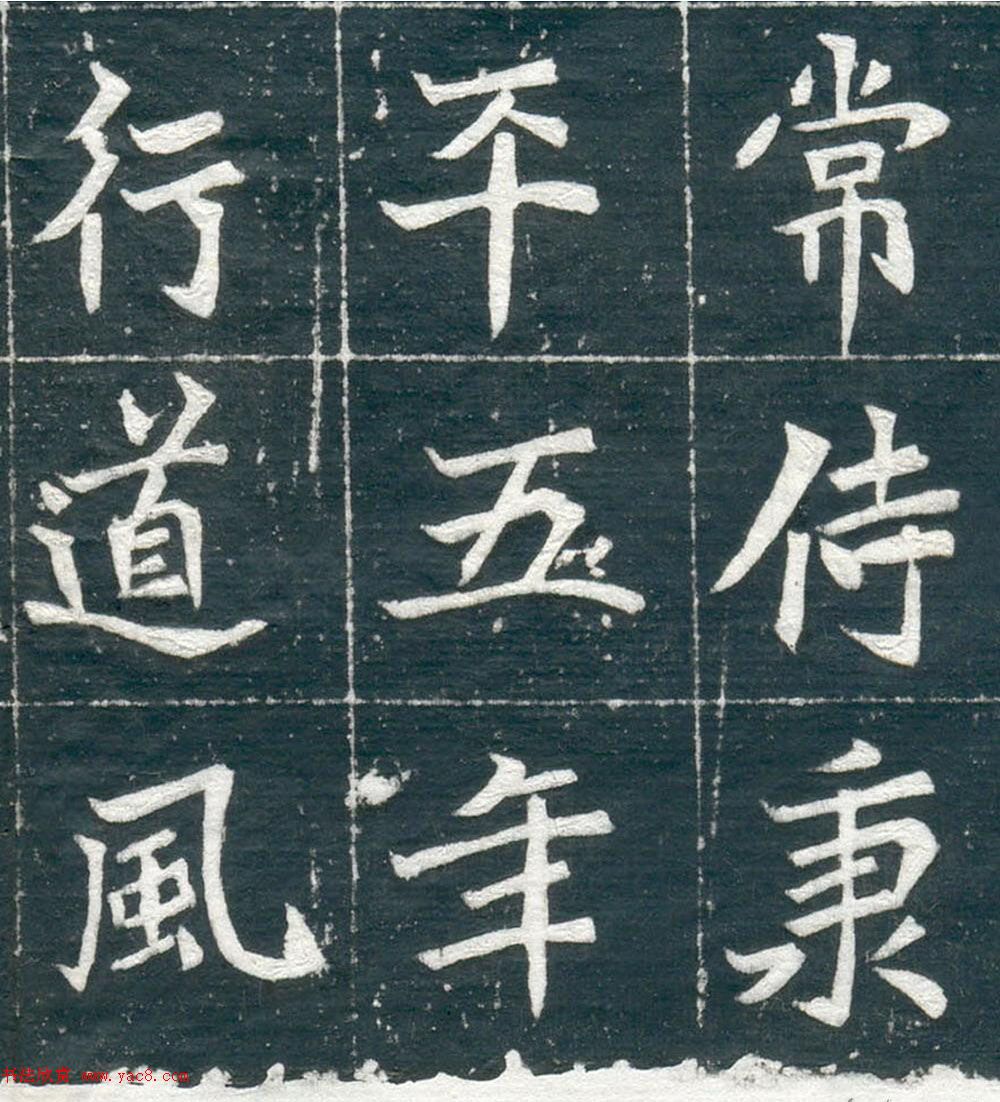 常侍秉
平五年
行道風
书法欣赏 www.yac8.com